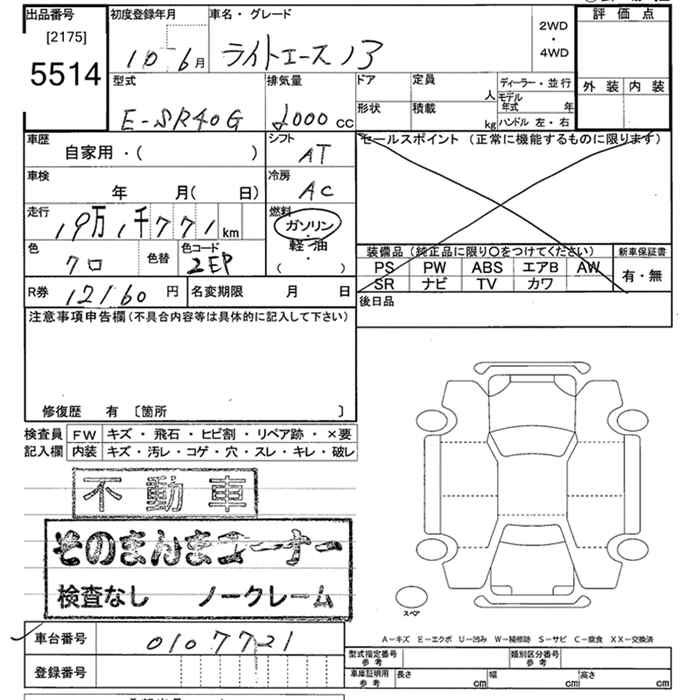 出品番号
[2175]
5514
初度登録年月
10 6月
車名・グレード
ライトエース 13
2WD
・
4WD
評価点
外装 内装
型式
E-SR40G
排気量
2000 CC
ドア
形状
定員
人
積載
kg
ディーラー・並行
モデル年式 年
ハンドル 左・右
車歴
自家用・( )
シフト
AT
セールスポイント (正常に機能するものに限ります)
車検
年 月( 日)
冷房
AC
走行
19万1千771km
燃料
ガソリン
・
軽油
( )
色
クロ
色替
色コード
2EP
装備品 (純正品に限り〇をつけてください)
新車保証書
PS PW ABS エアB AW
有・無
SR ナビ TV カワ
R券 12160円
名変期限 月 日
後日品
注意事項申告欄(不具合内容等は具体的に記入して下さい)
修復歴 有 〔箇所 〕
検査員記入欄
FW キズ・飛石・ヒビ割・リペア跡・×要
内装 キズ・汚レ・コゲ・穴・スレ・キレ・破レ
不動車
そのまんまコーナー
検査なし ノークレーム
スペア
A−キズ E−エクボ U−凹み W−補修跡 S−サビ C−腐食 XX−交換済
車台番号
0107721
登録番号
型式指定番号
参考
類別区分番号
参考
車庫証明用
参考
長さ cm 幅 cm 高さ cm